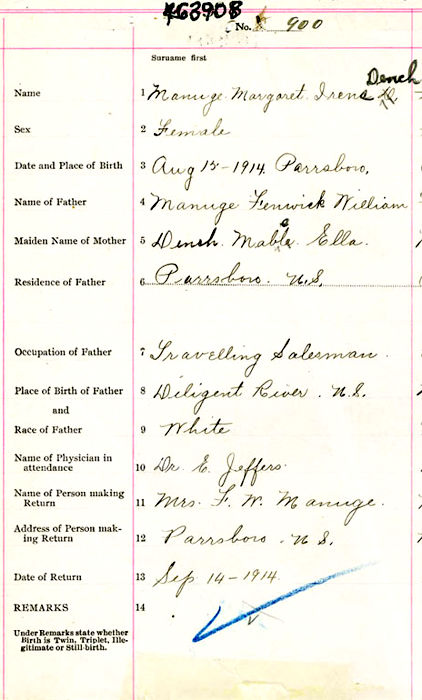 763908
No. 900
Surname first
Dench
Name 1 Manuge. Margaret. Irene
Sex 2 Female
Date and Place of Birth 3 Aug 15-1914. Parrsboro,
Name of Father 4 Manuge Fenwick William
Maiden Name of Mother 5 Dench. Mable Ella.
Residence of Father 6 Parrsboro. N.S,
Occupation of Father 7 Travelling Salesman.
Place of Birth of Father 8 Diligent River. N.S.
and
Race of Father 9 White
Name of Physician in
attendance 10 Dr. E. Jeffers.
Name of Person making
Return 11 Mrs. F. W. Manuge.
Address of Person mak-
ing Return 12 Parrsboro. N S.
Date of Return 13 Sep. 14-1914.
REMARKS 14
Under Remarks state whether
Birth is Twin, Triplet, Ille-
gitimate or Still-birth.